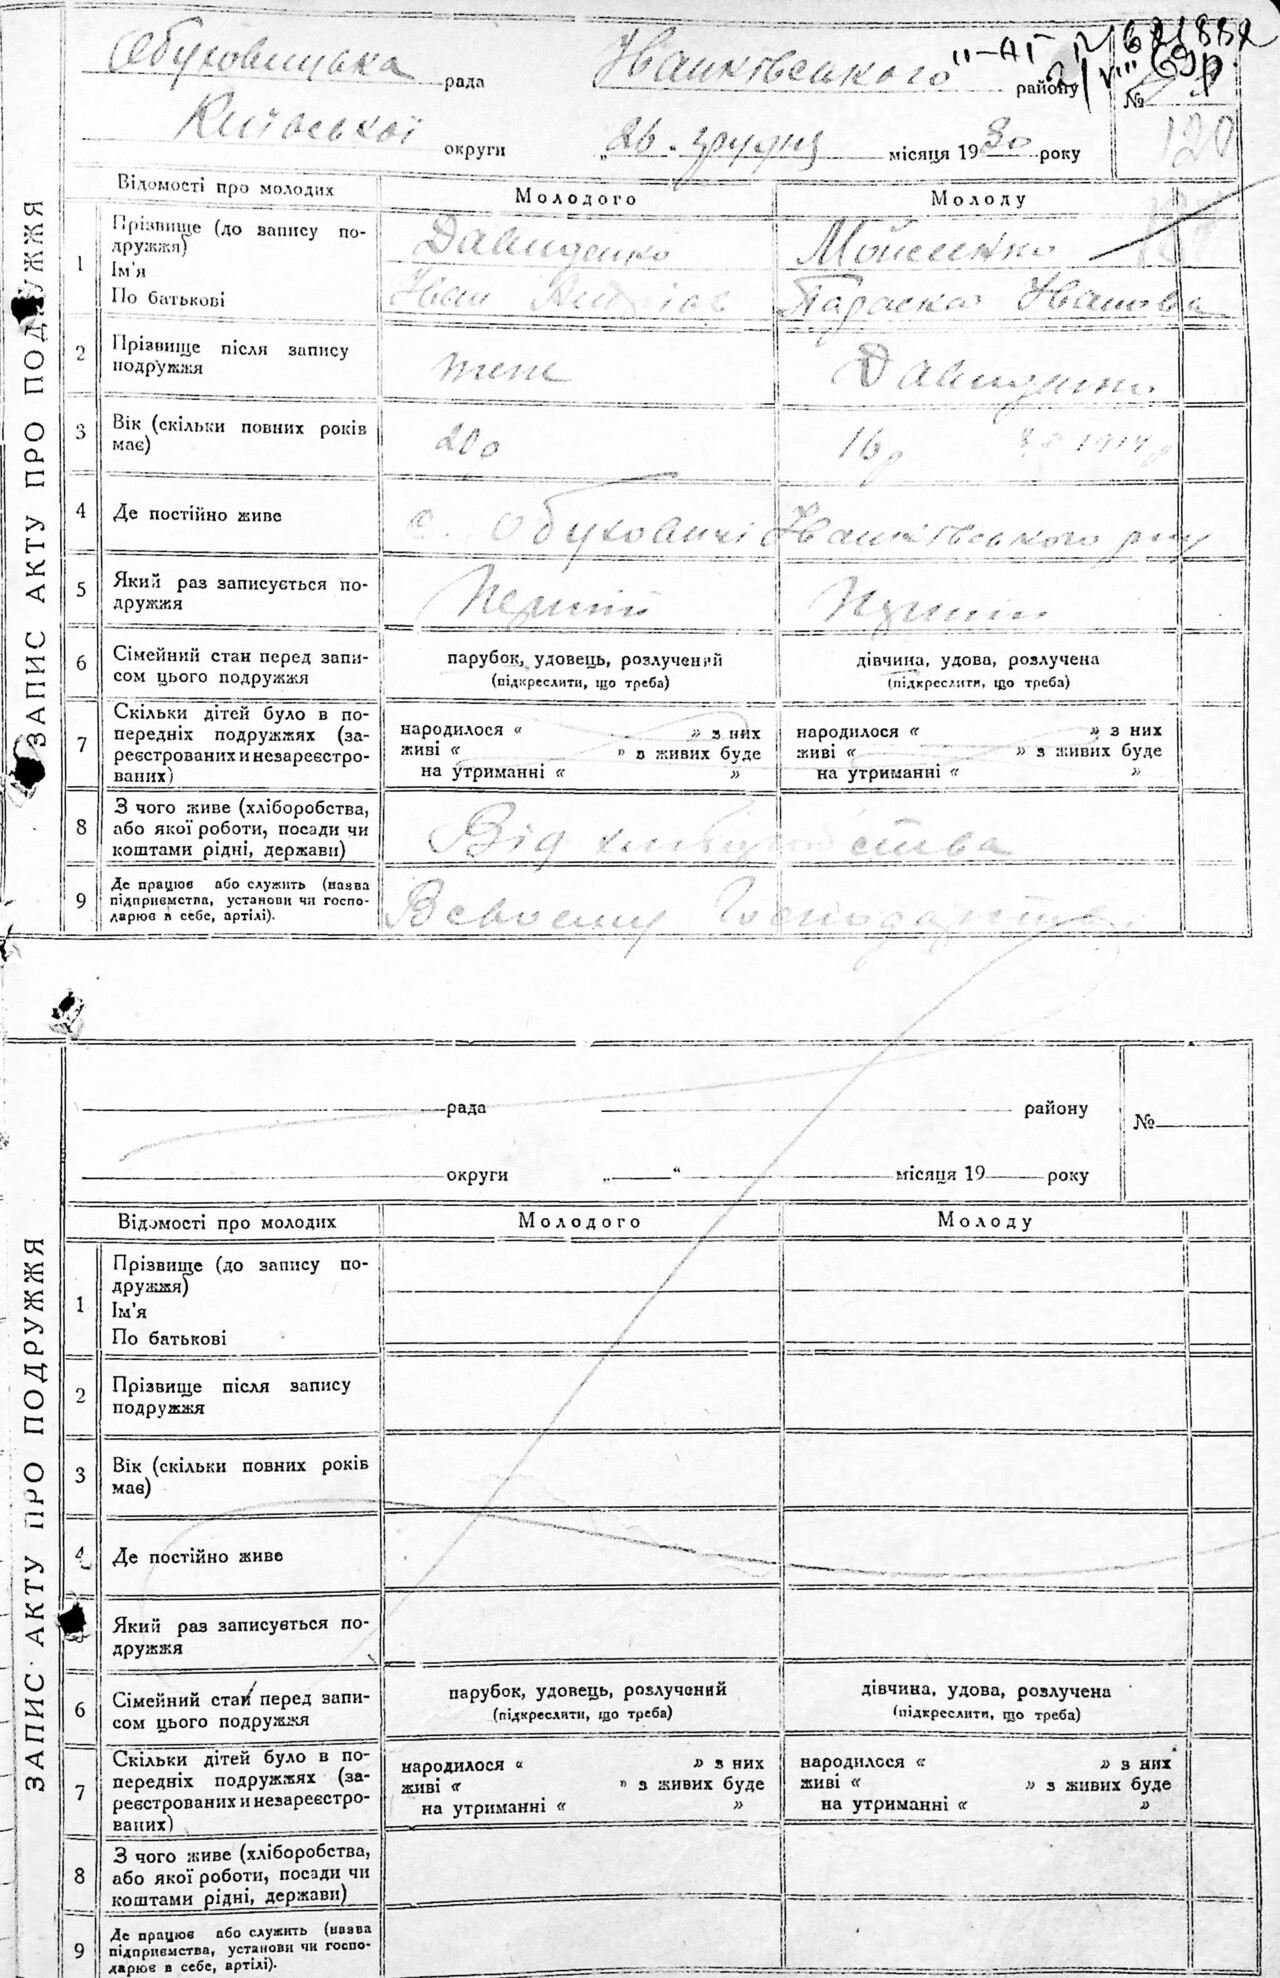 Обуховицька рада Іванківського району
№
Київської округи „26„ грудня місяця 1930 року
120
ЗАПИС АКТУ ПРО ПОДРУЖЖЯ
Відомості про молодих Молодого Молоду
1 Прізвище (до запису по-
дружжя) Давиденко Мойсеєнко
Ім'я
По батькові Іван Параска Іванова
2 Прізвище після запису
подружжя теж Давиденко
3 Вік (скільки повних років
має) 20р 16р 1914р
4 Де постійно живе с. Обуховичі Іванківського р-ну
5 Який раз записується по-
дружжя Перший Перший
6 Сімейний стан перед запи-
сом цього подружжя парубок, удовець, розлучений
(підкреслити, що треба)
дівчина, удова, розлучена
(підкреслити, що треба)
7 Скільки дітей було в по-
передніх подружжях (за-
реєстрованих и незареєстро-
ваних)
народилося « » з них
живі « » з живих буде
на утриманні « »
народилося « » з них
живі « » з живих буде
на утриманні « »
8 З чого живе (хліборобства,
або якої роботи, посади чи
коштами рідні, держави) Від хліборобства
9 Де працює або служить (назва
підприємства, установи чи госпо-
дарює в себе, артілі). В своєму Господарстві
рада району
№
округи „ “ місяця 19 року
ЗАПИС АКТУ ПРО ПОДРУЖЖЯ
Відомості про молодих Молодого Молоду
1 Прізвище (до запису по-
дружжя)
Ім'я
По батькові
2 Прізвище після запису
подружжя
3 Вік (скільки повних років
має)
4 Де постійно живе
Який раз записується по-
дружжя
6 Сімейний стан перед запи-
сом цього подружжя
парубок, удовець, розлучений
(підкреслити, що треба)
дівчина, удова, розлучена
(підкреслити, що треба)
7 Скільки дітей було в по-
передніх подружжях (за-
реєстрованих и незареєстро-
ваних)
народилося « » з них
живі « » з живих буде
на утриманні « »
народилося « » з них
живі « » з живих буде
на утриманні « »
8 З чого живе (хліборобства,
або якої роботи, посади чи
коштами рідні, держави)
9 Де працює або служить (назва
підприємства, установи чи госпо-
дарює в себе, артілі).